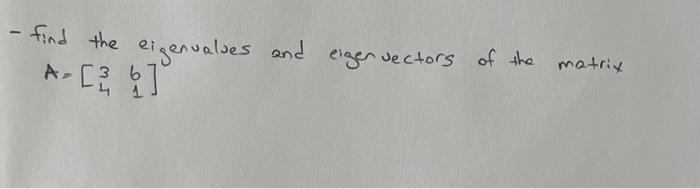 - find the eigenvalues and eigenvectors of the matrix
A = [3 6
4 1]